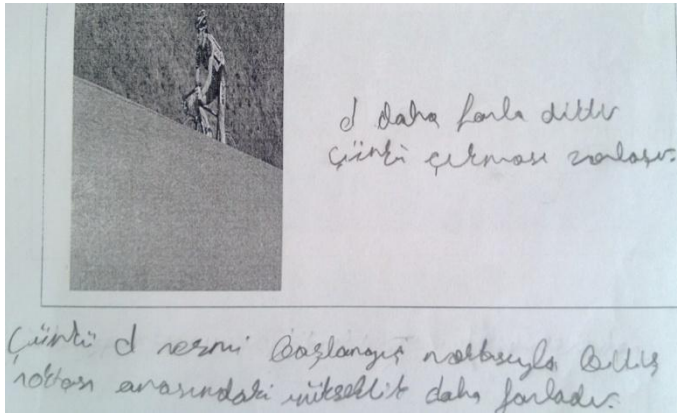 d daha fazla diktir
Çünkü çıkması zorlaşır.
Çünkü d resmi başlangıç noktasıyla bitiş
noktası arasındaki yükseklik daha fazladır.